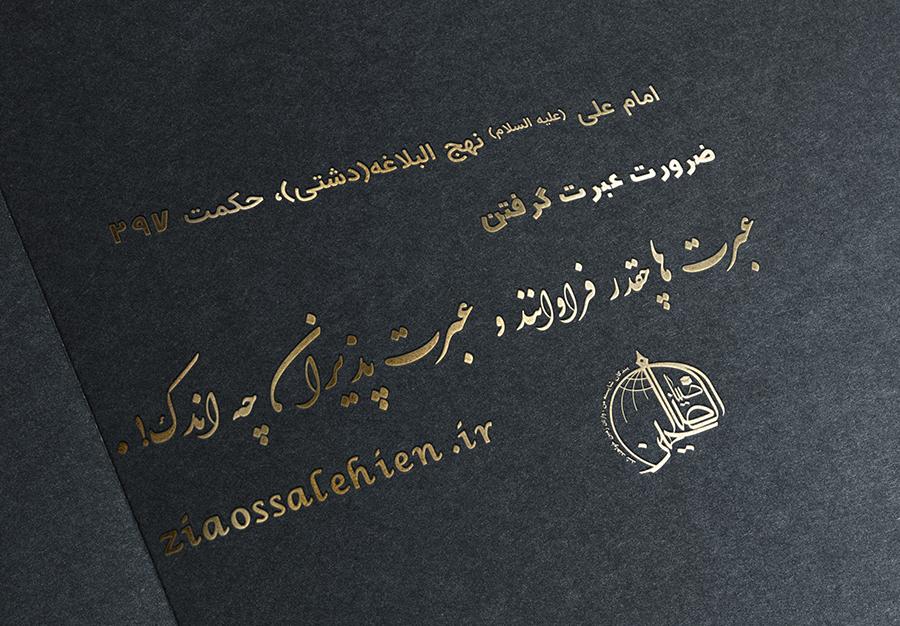 امام علی (علیه السلام) نهج البلاغه(دشتی)، حکمت ۲۹۷
ضرورت عبرت گرفتن
عبرت ها چقدر فراوانند و عبرت پذیران چه اندک! .
ضیاءالصالحین
ziaossalehien.ir